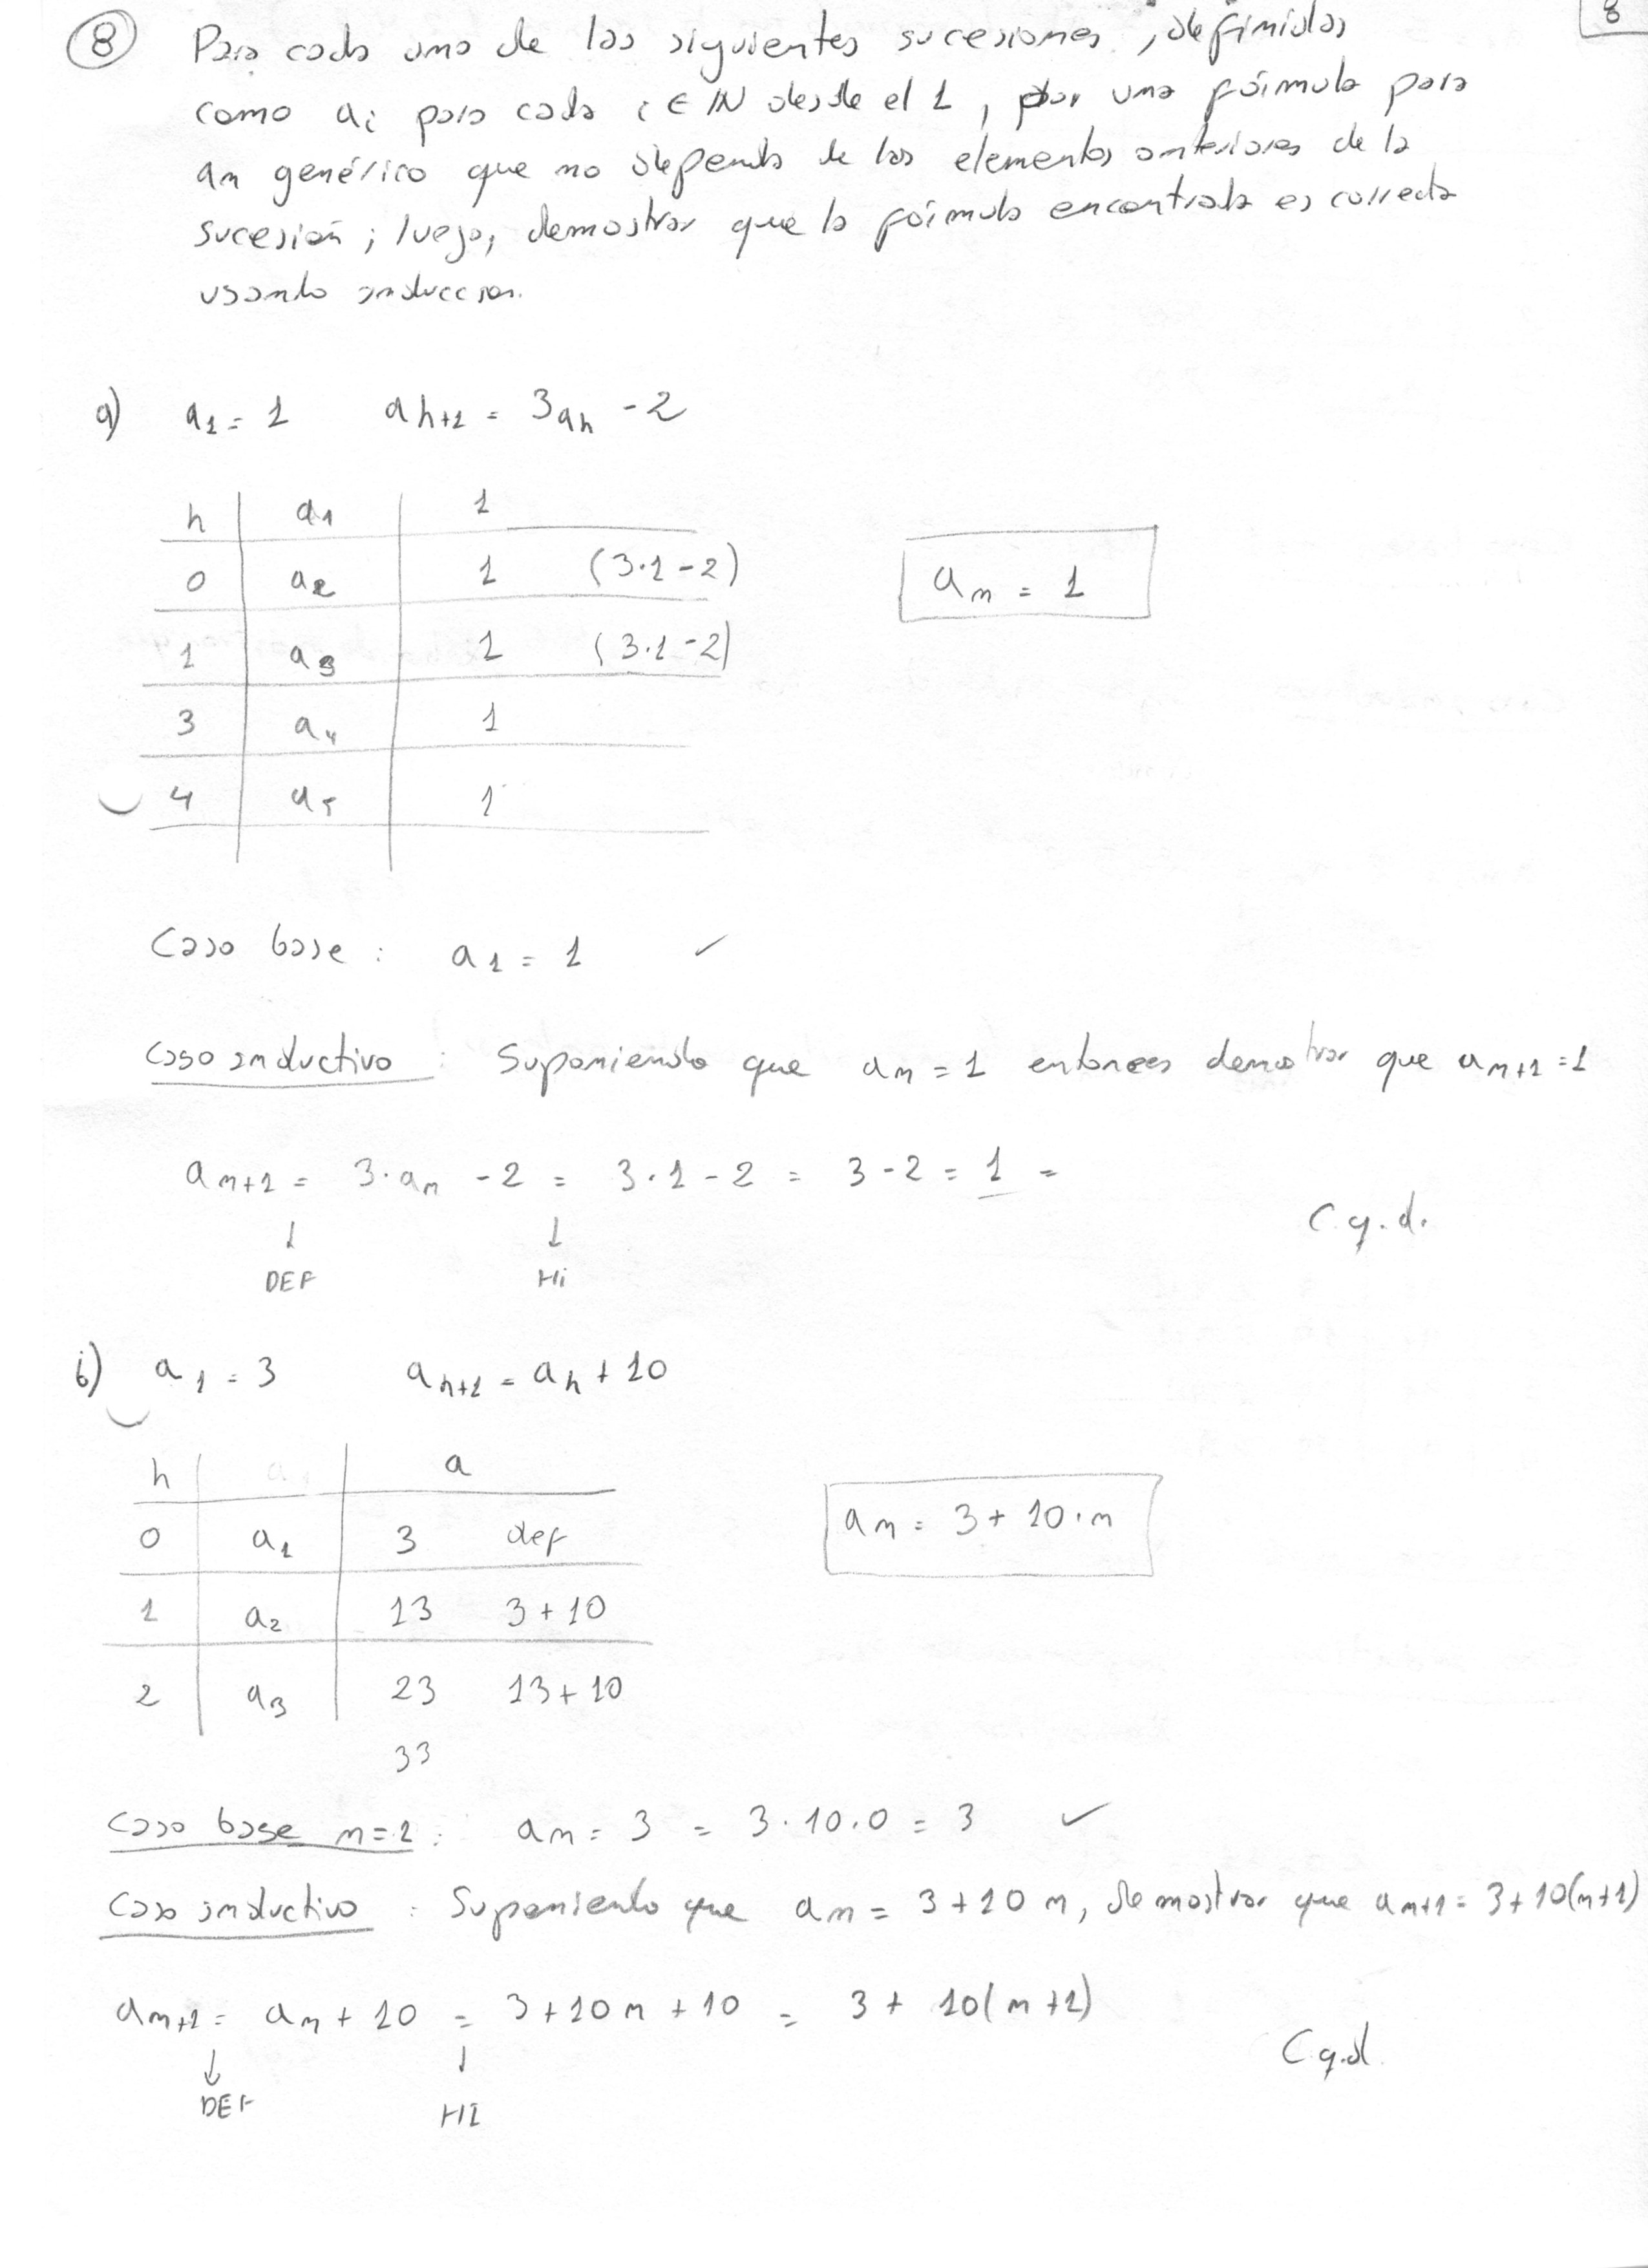 8
⑧ Para cada una de las siguientes sucesiones, definidas
como ai para cada i ∈ IN desde el 1, dar una fórmula para
an genérico que no dependa de los elementos anteriores de la
sucesión; luego, demostrar que la fórmula encontrada es correcta
usando inducción.
a) a1 = 1 ah+1 = 3ah - 2
h | a1 | 1
0 | a2 | 1 (3·1-2)
an = 1
1 | a3 | 1 (3·1-2)
3 | a4 | 1
4 | a5 | 1
Caso base: a1 = 1 ✓
Caso inductivo: Suponiendo que an = 1 entonces demostrar que an+1 = 1
an+1 = 3·an - 2 = 3·1 - 2 = 3 - 2 = 1 =
↓ ↓
C.q.d.
DEF Hi
i) a1 = 3 ah+1 = ah + 10
h | a
0 | a1 | 3 def
an = 3 + 10·n
1 | a2 | 13 3+10
2 | a3 | 23 13+10
33
Caso base n=1: an = 3 = 3·10·0 = 3 ✓
Caso inductivo: Suponiendo que an = 3+10n, demostrar que an+1 = 3+10(n+1)
an+1 = an + 10 = 3+10n+10 = 3 + 10(n+1)
↓ ↓
C.q.d.
DEF HI